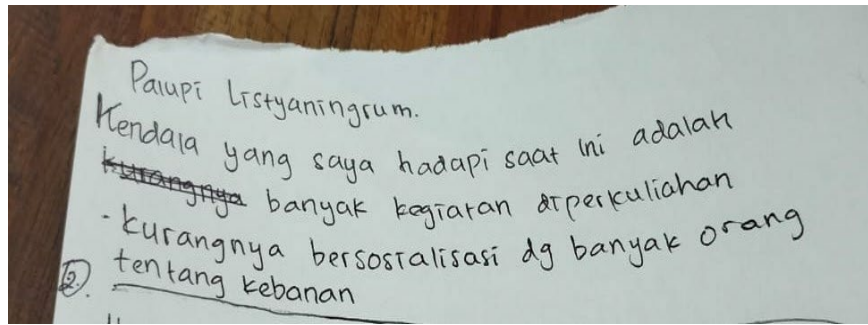 Palupi Listyaningrum.
Kendala yang saya hadapi saat ini adalah
kurangnya banyak kegiatan diperkuliahan
- kurangnya bersosialisasi dg banyak orang
2. tentang kebanan